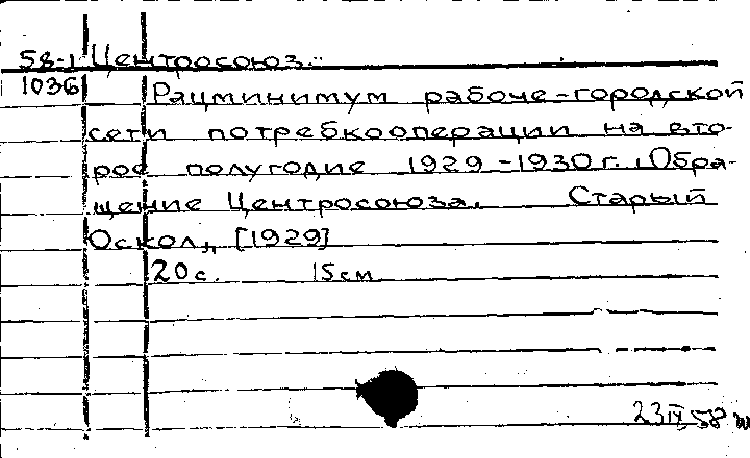 58-1 Центросоюз.
1036 Рацминимум рабоче-городской
сети потребкооперации на вто-
рое полугодие 1929-1930 г. Обра-
щение Центросоюза. Старый
Оскол, [1929]
20 с. 15 см
23 IV 58